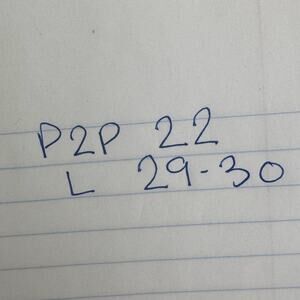 P2P 22
L 29-30